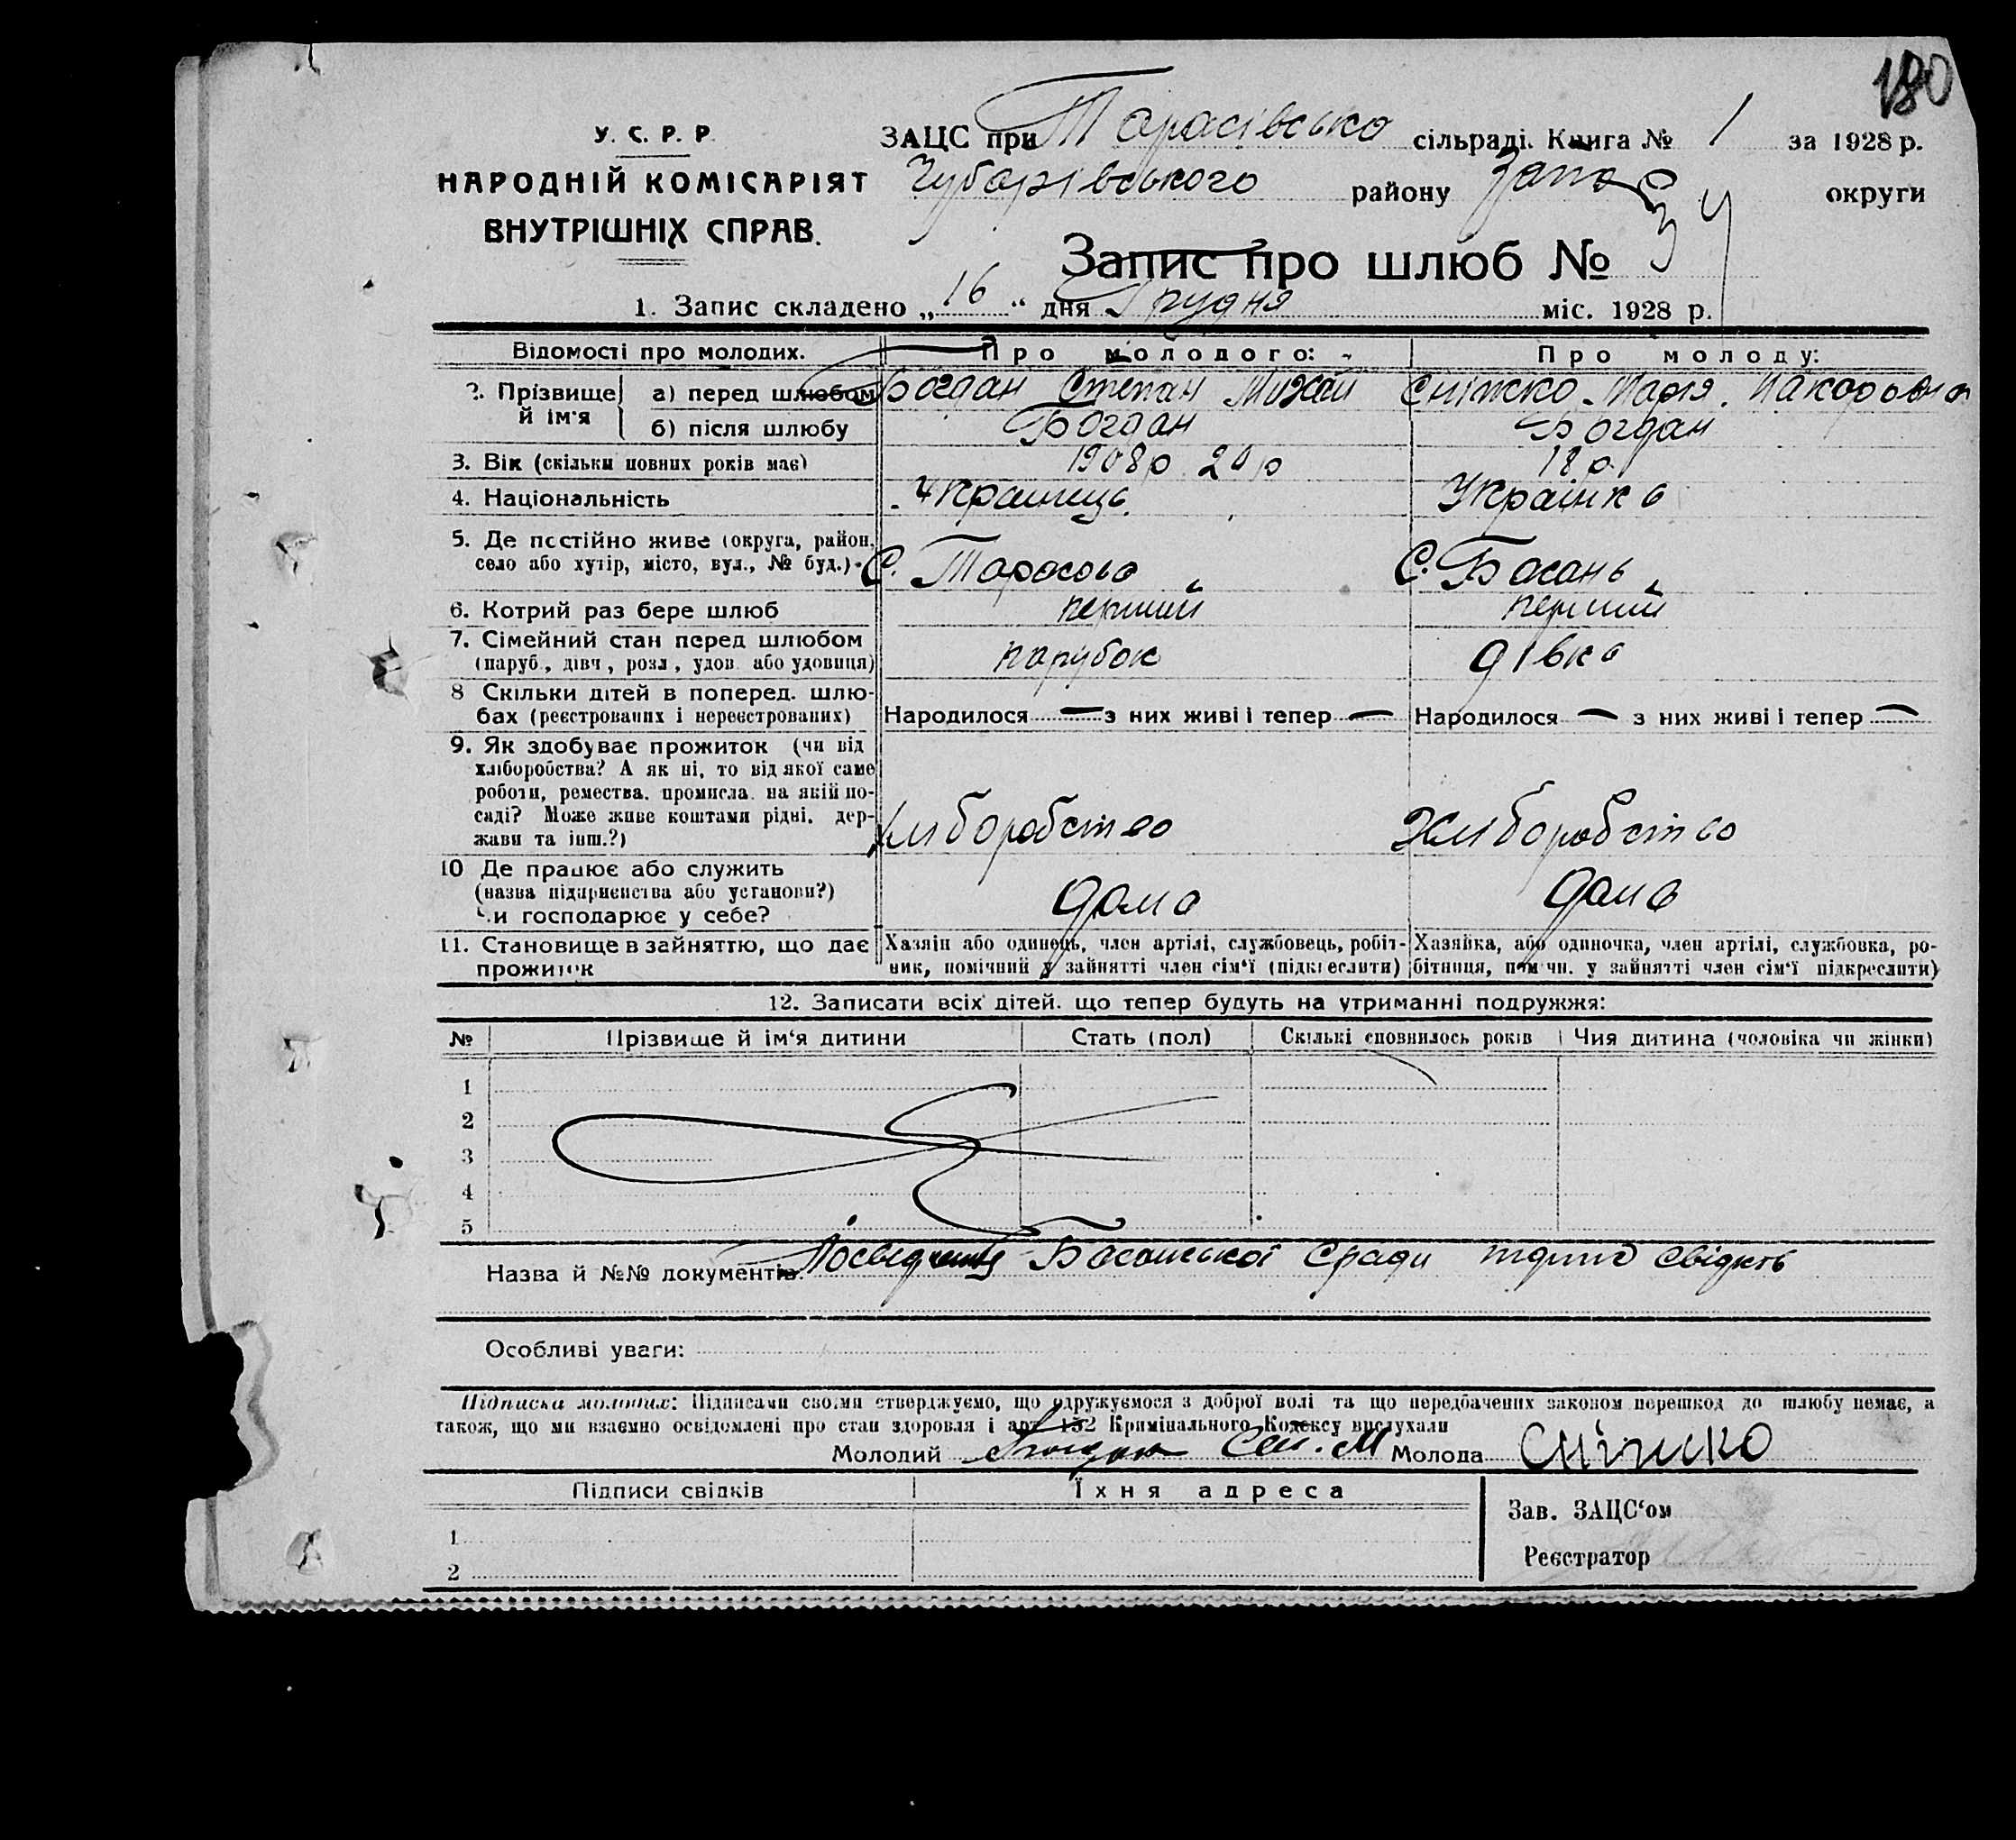 180
У. С. Р. Р.
НАРОДНІЙ КОМІСАРІЯТ
ВНУТРІШНІХ СПРАВ.
ЗАЦС при Тарасівсько сільраді. Книга № 1 за 1928 р.
Чубарівського району Запо округи
Запис про шлюб № 34
1. Запис складено „16“ дня Грудня міс. 1928 р.
Відомості про молодих. Про молодого: Про молоду:
2. Прізвище й ім'я а) перед шлюбом Богдан Степан Михай Сніжко Марія
б) після шлюбу Богдан Богдан
3. Вік (скільки повних років має) 1908р 20р 18 р.
4. Національність Українець. Українка
5. Де постійно живе (округа, район,
село або хутір, місто, вул., № буд.) С. Тарасова С. Басань
6. Котрий раз бере шлюб перший перший
7. Сімейний стан перед шлюбом
(паруб., дівч., розл., удов. або удовиця) парубок дівка
8 Скільки дітей в поперед. шлю-
бах (реєстрованих і нереєстрованих) Народилося — з них живі і тепер — Народилося — з них живі і тепер —
9. Як здобуває прожиток (чи від
хліборобства? А як ні, то від якої саме
роботи, ремества, промисла, на якій по-
саді? Може живе коштами рідні, дер-
жави та інш.?) хліборобство Хліборобство
10 Де працює або служить
(назва підприємства або установи?)
Чи господарює у себе? дома дома
11. Становище в зайняттю, що дає
прожиток
Хазяїн або одинець, член артілі, службовець, робіт-
ник, помічний у зайнятті член сім'ї (підкреслити)
Хазяйка, або одиночка, член артілі, службовка, ро-
бітниця, помічн. у зайнятті член сім'ї підкреслити)
12. Записати всіх дітей, що тепер будуть на утриманні подружжя:
№ Прізвище й ім'я дитини Стать (пол) Скількі сповнилось років Чия дитина (чоловіка чи жінки)
1
2
3
4
5
Назва й №№ документів: Басанської Сради
Особливі уваги:
Підписка молодих: Підписами своїми стверджуємо, що одружуємося з доброї волі та що передбачених законом перешкод до шлюбу немає, а
також, що ми взаємно освідомлені про стан здоровля і арт. 152 Кримінального Кодексу вислухали
Молодий Богдан Сте. М Молода Сніжко
Підписи свідків Їхня адреса
1
2
Зав. ЗАЦС'ом
Реєстратор